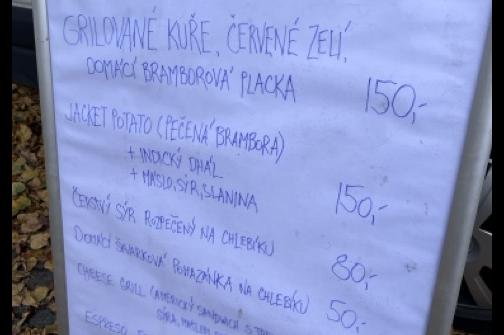 GRILOVANÉ KUŘE, ČERVENÉ ZELÍ,
DOMÁCÍ BRAMBOROVÁ PLACKA 150,-
JACKET POTATO (PEČENÁ BRAMBORA)
+ INDICKÝ DHÁL
+ MÁSLO, SÝR, SLANINA 150,-
ČERSTVÝ SÝR ROZPEČENÝ NA CHLEBÍKU 80,-
DOMÁCÍ ŠKVARKOVÁ POMAZÁNKA NA CHLEBÍKU 50,-
CHEESE GRILL (AMERICKÝ SANDWICH S
SÝRA, MÁSLEM
ESPRESO